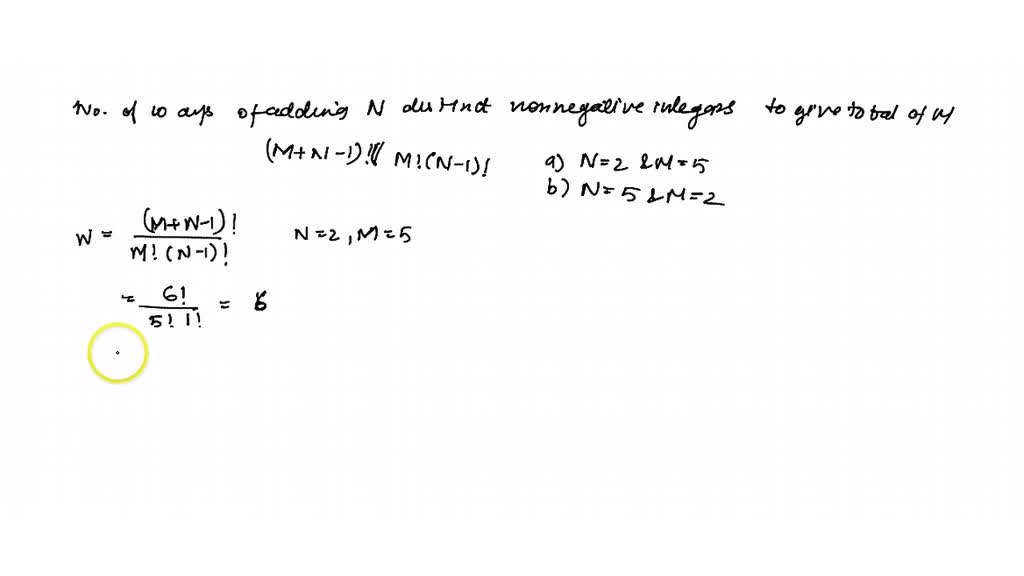 No. of ways of adding N distinct nonnegative integers to give total of M
(M+N-1)!/( M!(N-1)! a) N=2 & M=5
b) N=5 & M=2
W = (M+N-1)! / M! (N-1)! N=2, M=5
= 6! / 5! 1! = 6